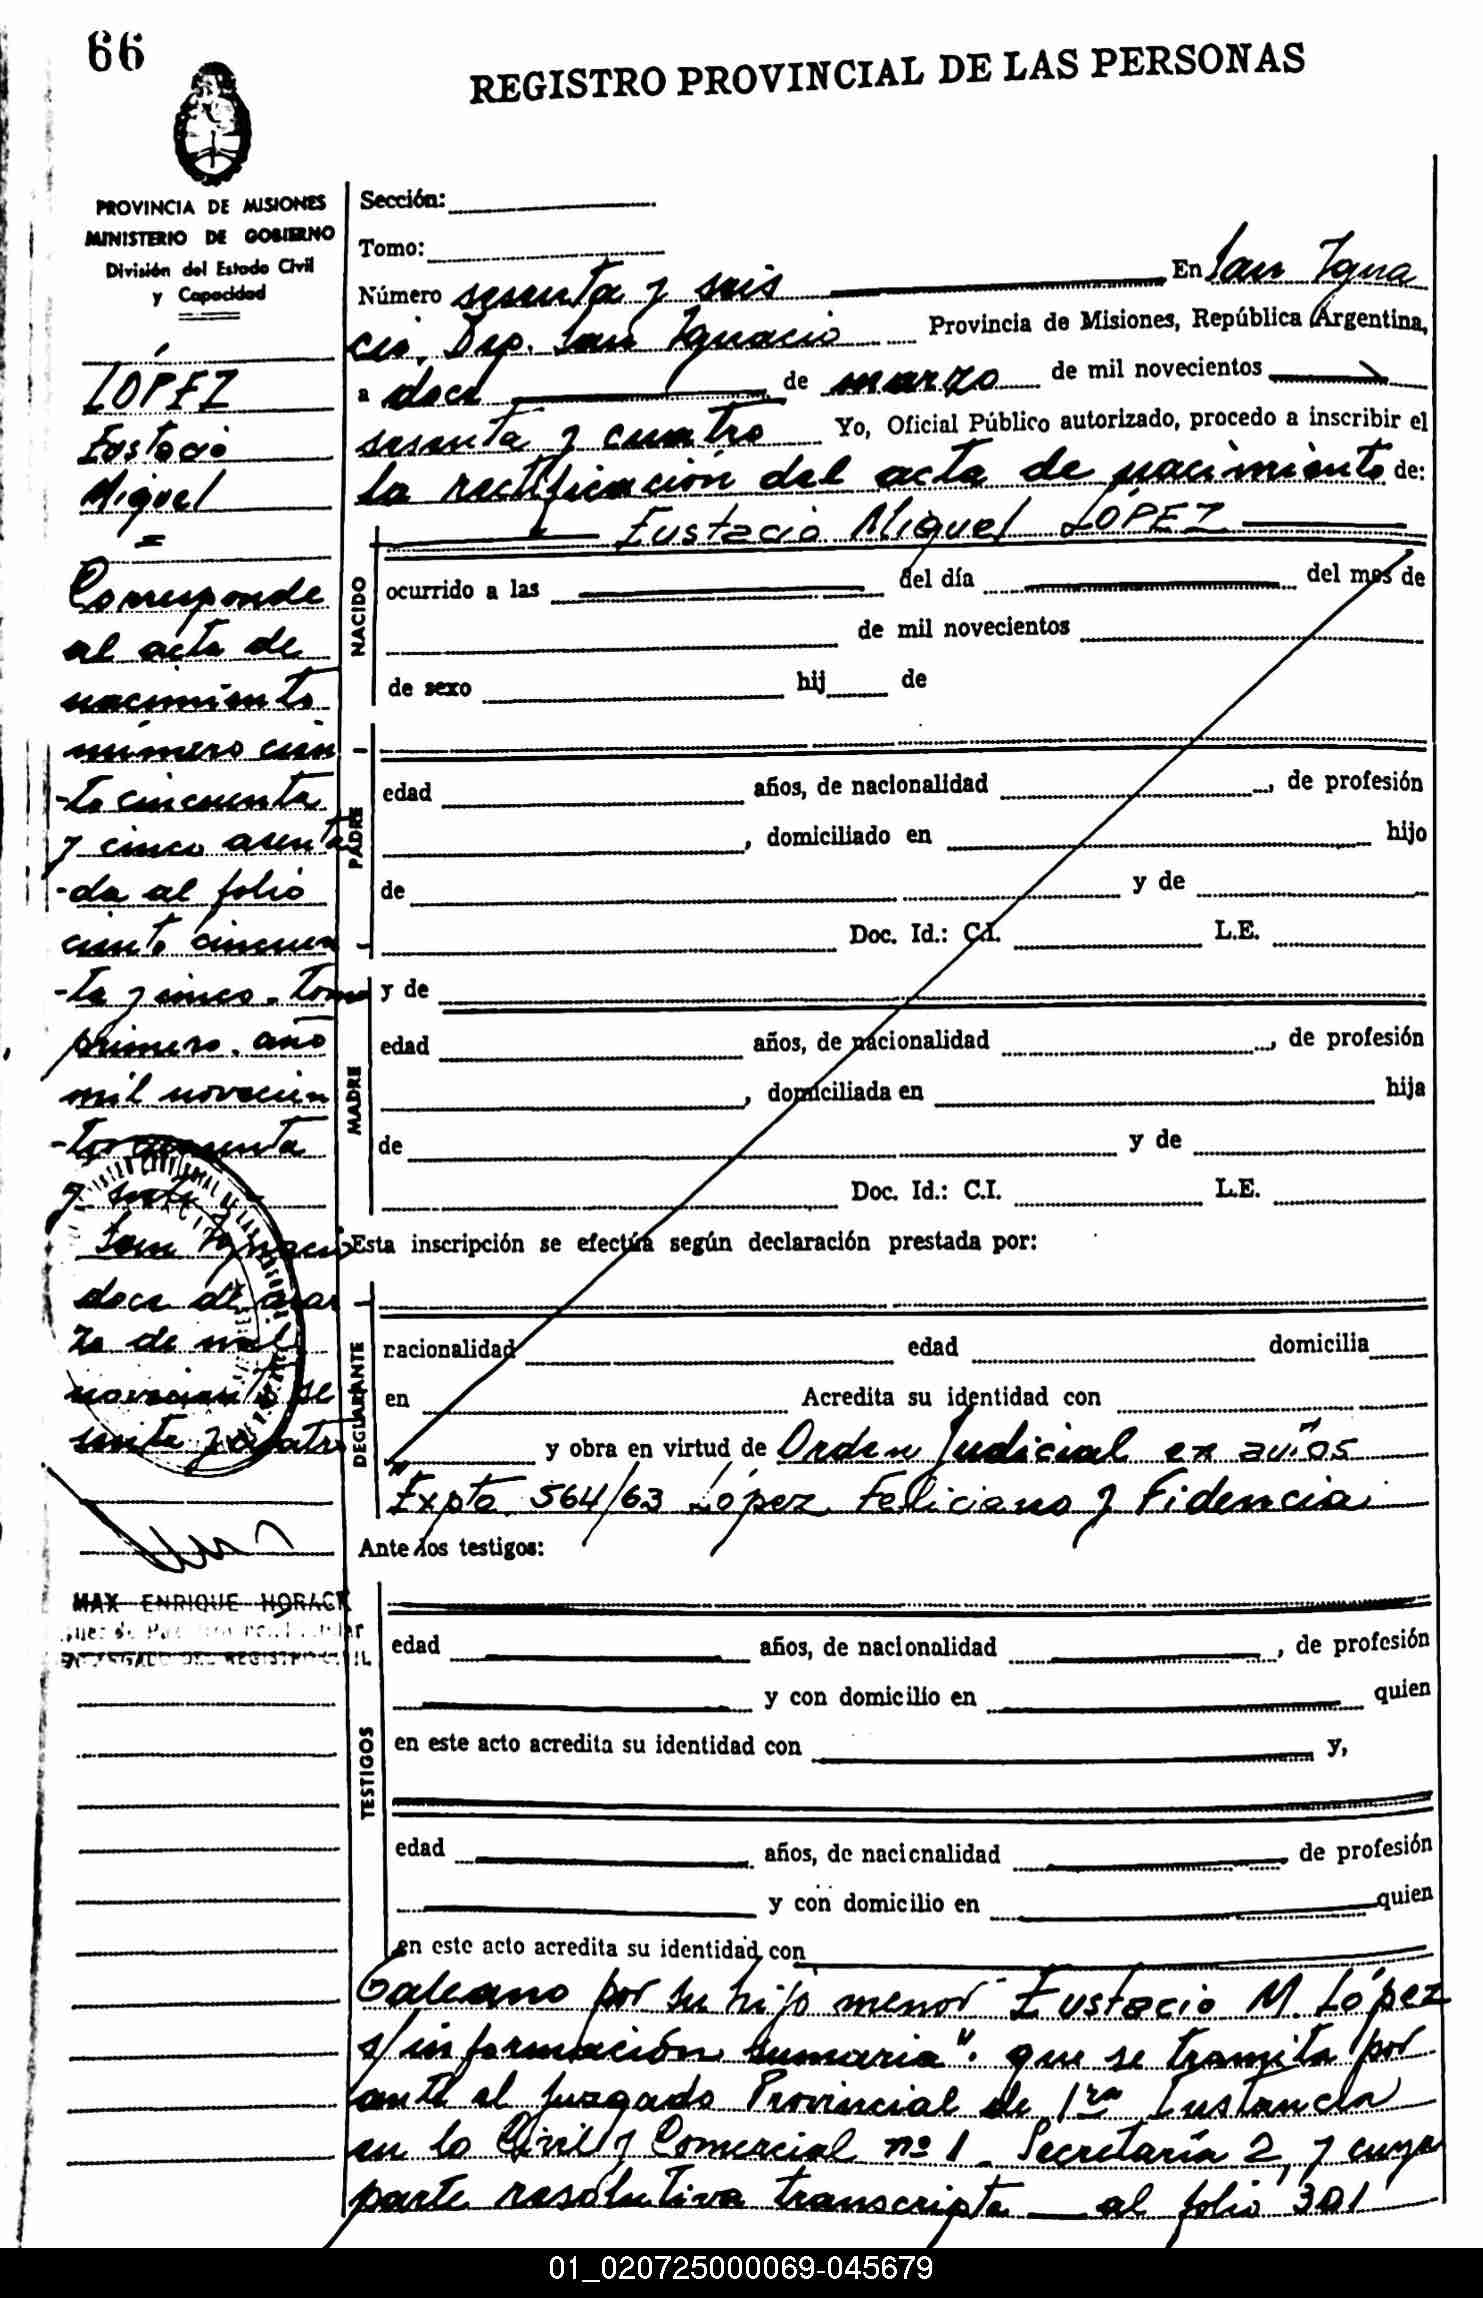 66
REGISTRO PROVINCIAL DE LAS PERSONAS
PROVINCIA DE MISIONES
MINISTERIO DE GOBIERNO
División del Estado Civil
y Capacidad
LÓPEZ
Eustacio
Miguel
=
Corresponde
al acta de
nacimiento
número cien
-to cincuenta
y cinco asenta
-da al folio
ciento cincuen
-ta y cinco. tomo
primero. año
mil novecien
-tos cincuenta
y siete
San Ignacio
doce de mar
zo de mil
novecientos se
senta y cuatro
MAX ENRIQUE HORACK
Sección:
Tomo:
Número sesenta y seis En San Igna
cio, Dep. San Ignacio Provincia de Misiones, República Argentina,
a doce de marzo de mil novecientos
sesenta y cuatro Yo, Oficial Público autorizado, procedo a inscribir el
la rectificación del acta de nacimiento de:
Eustacio Miguel LÓPEZ
NACIDO
ocurrido a las del día del mes de
de mil novecientos
de sexo hij de
PADRE
edad años, de nacionalidad , de profesión
, domiciliado en hijo
de y de
Doc. Id.: C.I. L.E.
MADRE
y de
edad años, de nacionalidad , de profesión
, domiciliada en hija
de y de
Doc. Id.: C.I. L.E.
Esta inscripción se efectúa según declaración prestada por:
DECLARANTE
nacionalidad edad domicilia
en Acredita su identidad con
y obra en virtud de Orden Judicial en autos
"Expte. 564/63 López, Feliciano y Fidencia
Ante los testigos:
TESTIGOS
edad años, de nacionalidad , de profesión
y con domicilio en quien
en este acto acredita su identidad con y,
edad años, de nacionalidad de profesión
y con domicilio en quien
en este acto acredita su identidad con
Galeano por su hijo menor Eustacio M. López
s/información sumaria". que se tramita por
ante el juzgado Provincial de 1ra Instancia
en lo Civil y Comercial nº 1. Secretaría 2, y cuya
parte resolutiva transcripta al folio 301
01_020725000069-045679